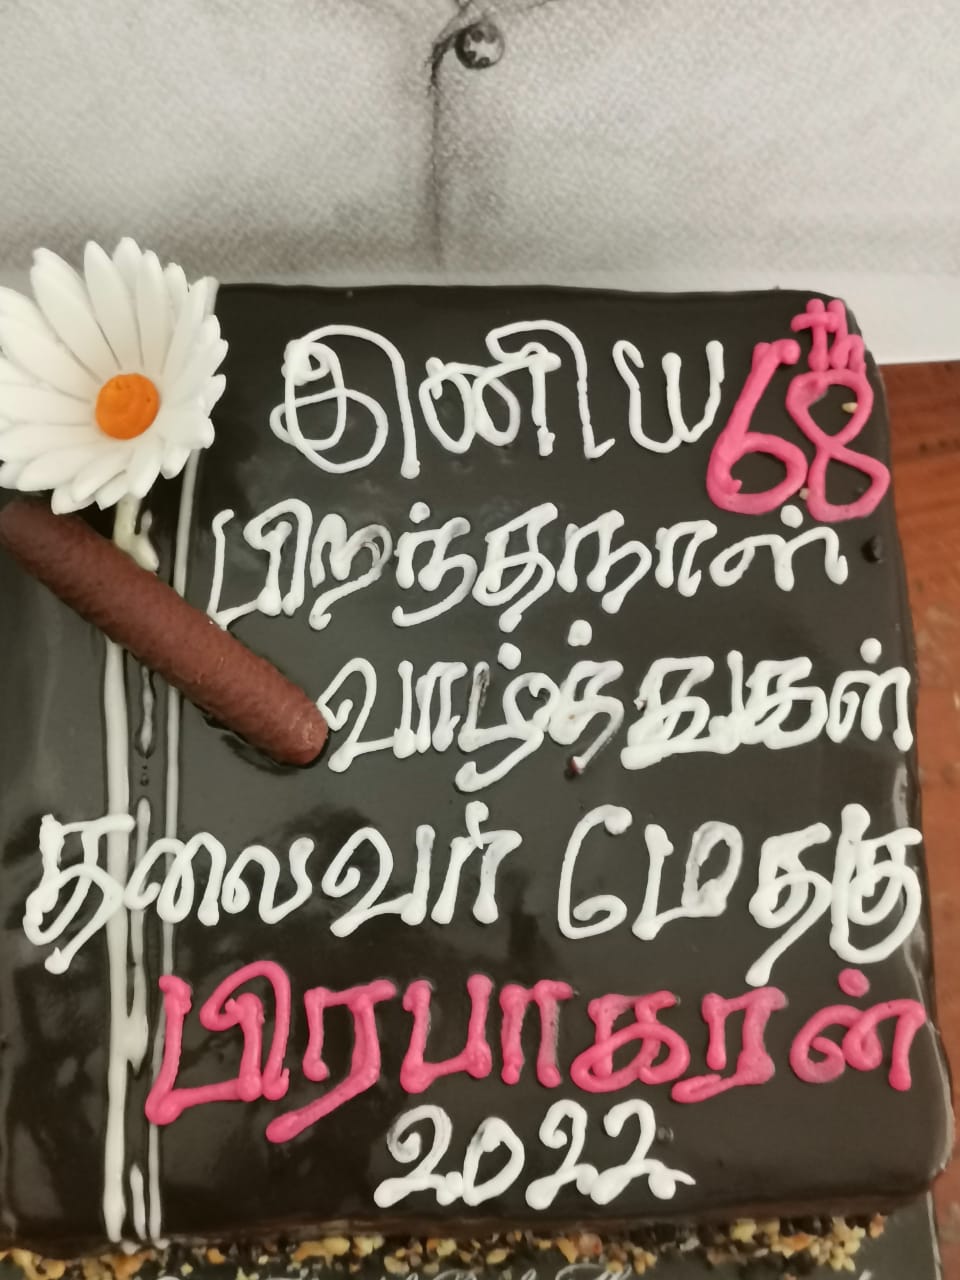 இனிய 68th
பிறந்தநாள்
வாழ்த்துகள்
தலைவர் மேதகு
பிரபாகரன்
2022